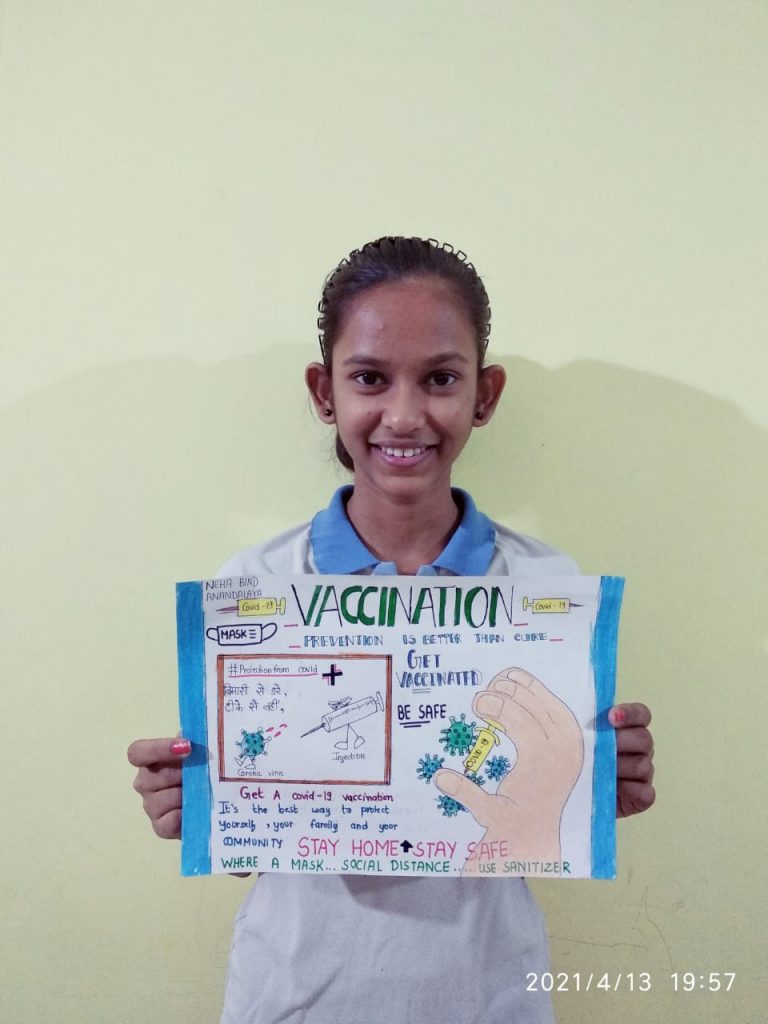 NEHA BIND
ANANDALAYA
Covid-19
VACCINATION
Covid-19
MASK
PREVENTION IS BETTER THAN CURE
#Protection from covid
बिमारी से डरे,
टीके से नहीं,
Corona virus
Injection
GET
VACCINATED
BE SAFE
COVID-19
Get A covid-19 vaccination
It's the best way to protect
yourself, your family and your
COMMUNITY STAY HOME STAY SAFE
WHERE A MASK... SOCIAL DISTANCE..... USE SANITIZER
2021/4/13 19:57